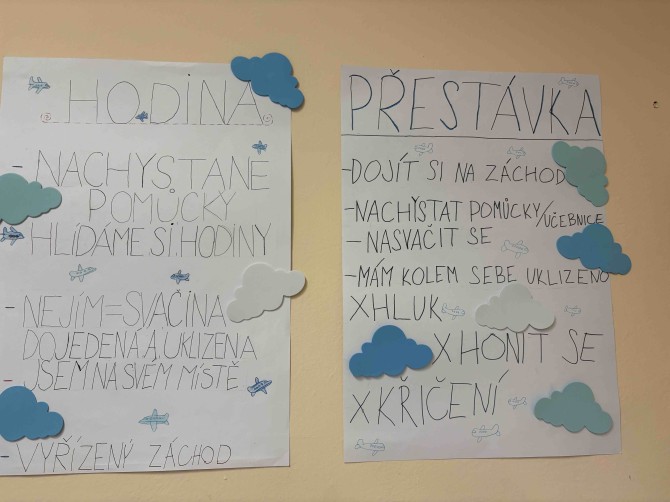 HODINA
- NACHYSTANÉ
POMŮCKY
- HLÍDÁME SI HODINY
- NEJÍM = SVAČINA
DOJEDENÁ A UKLIZENA
- JSEM NA SVÉM MÍSTĚ
- VYŘÍZENÝ ZÁCHOD
PŘESTÁVKA
- DOJÍT SI NA ZÁCHOD
- NACHYSTAT POMŮCKY/UČEBNICE
- NASVAČIT SE
- MÁM KOLEM SEBE UKLIZENO
X HLUK
X HONIT SE
X KŘIČENÍ